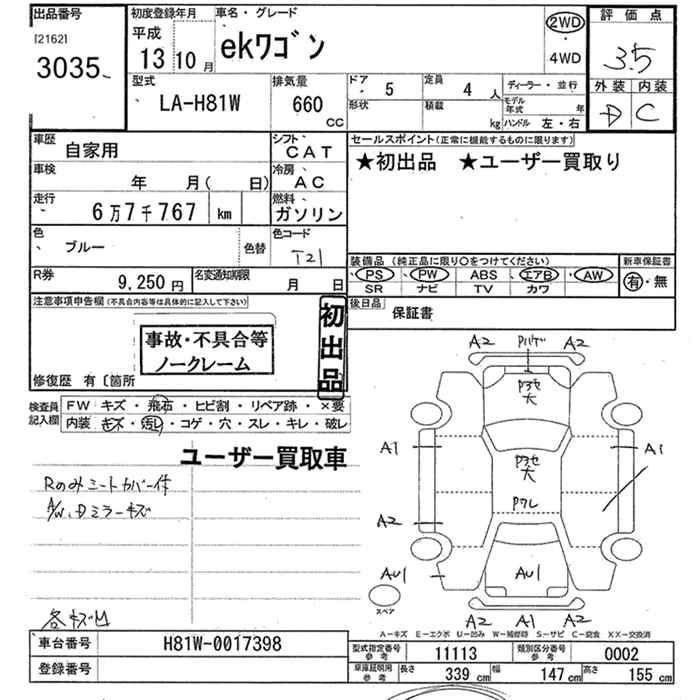 出品番号
[2162]
3035
初度登録年月
平成
13 10月
車名・グレード
ekワゴン
2WD
4WD
評価点
3.5
外装 内装
D C
型式
LA-H81W
排気量
660
CC
ドア
5
定員
4 人
形状
積載
kg
ディーラー・並行
モデル年式 年
ハンドル 左・右
車歴
自家用
シフト
CAT
車検
年 月( 日)
冷房
AC
走行
6万7千767 km
燃料
ガソリン
色
ブルー
色替
色コード
T21
R券
9,250円
名変通知期限
月 日
セールスポイント(正常に機能するものに限ります)
★初出品 ★ユーザー買取り
装備品(純正品に限り○をつけてください)
PS・PW・ABS・エアB・AW
SR ナビ TV カワ
新車保証書
有・無
後日品
保証書
注意事項申告欄(不具合内容等は具体的に記入して下さい)
事故・不具合等
ノークレーム
初出品
修復歴 有〔箇所
検査員
記入欄
FW キズ・飛石・ヒビ割・リペア跡・×要
内装 キズ・汚レ・コゲ・穴・スレ・キレ・破レ
ユーザー買取車
Rのみシートカバー付
A/W、Dミラーキズ
A2 A2
A1 A1
A2
AU1 AU1
A2 A1 A2
スペア
A-キズ E-エクボ U-凹み W-補修跡 S-サビ C-腐食 XX-交換済
車台番号
H81W-0017398
登録番号
型式指定番号
参考
11113
類別区分番号
参考
0002
車庫証明用
参考
長さ 339 cm 幅 147 cm 高さ 155 cm